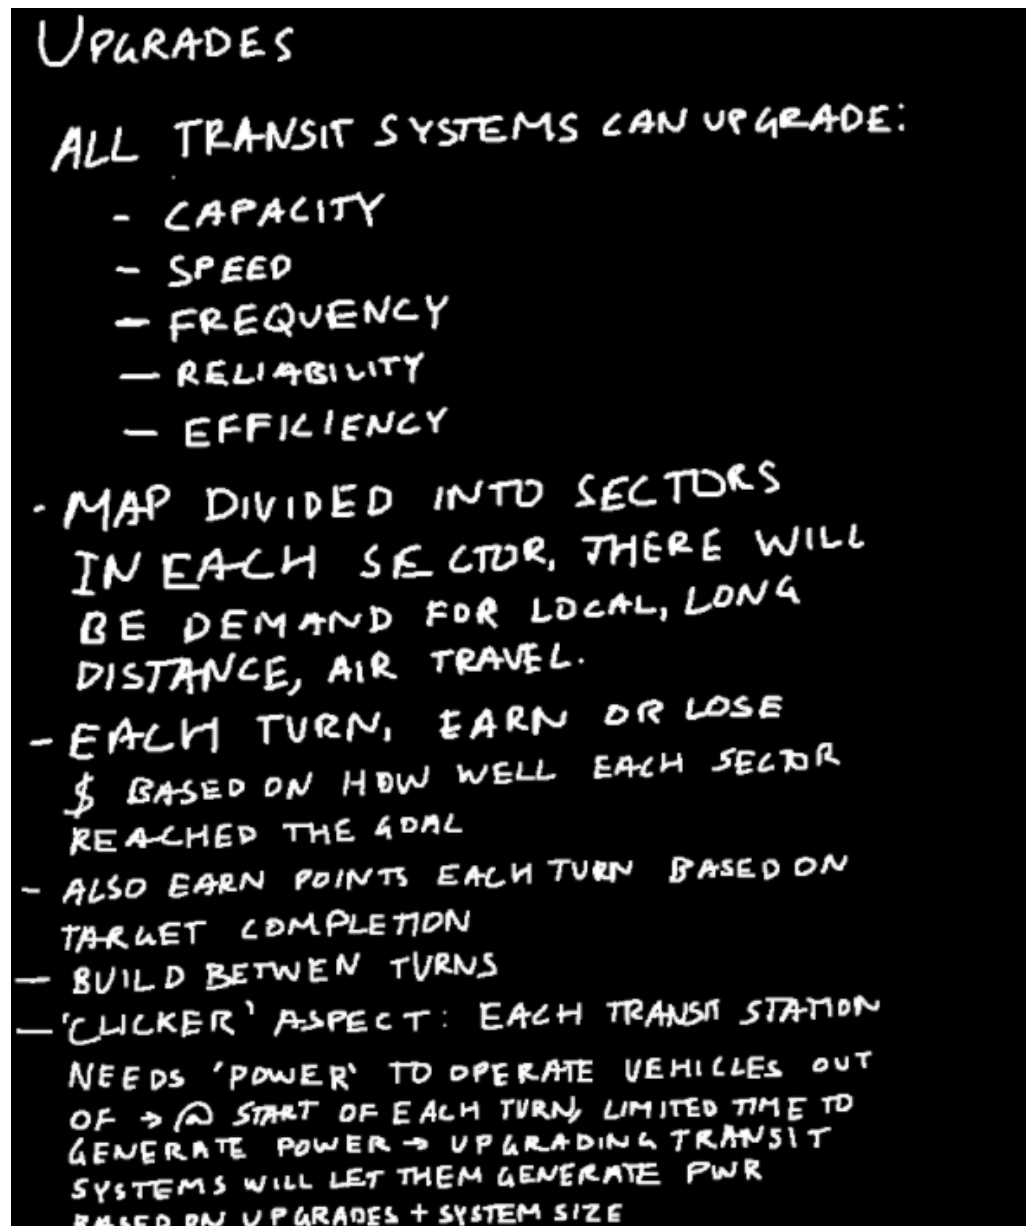 UPGRADES
ALL TRANSIT SYSTEMS CAN UPGRADE:
- CAPACITY
- SPEED
- FREQUENCY
- RELIABILITY
- EFFICIENCY
- MAP DIVIDED INTO SECTORS
IN EACH SECTOR, THERE WILL
BE DEMAND FOR LOCAL, LONG
DISTANCE, AIR TRAVEL.
- EACH TURN, EARN OR LOSE
$ BASED ON HOW WELL EACH SECTOR
REACHED THE GOAL
- ALSO EARN POINTS EACH TURN BASED ON
TARGET COMPLETION
- BUILD BETWEN TURNS
- 'CLICKER' ASPECT: EACH TRANSIT STATION
NEEDS 'POWER' TO OPERATE VEHICLES OUT
OF → @ START OF EACH TURN, LIMITED TIME TO
GENERATE POWER → UPGRADING TRANSIT
SYSTEMS WILL LET THEM GENERATE PWR
BASED ON UPGRADES + SYSTEM SIZE